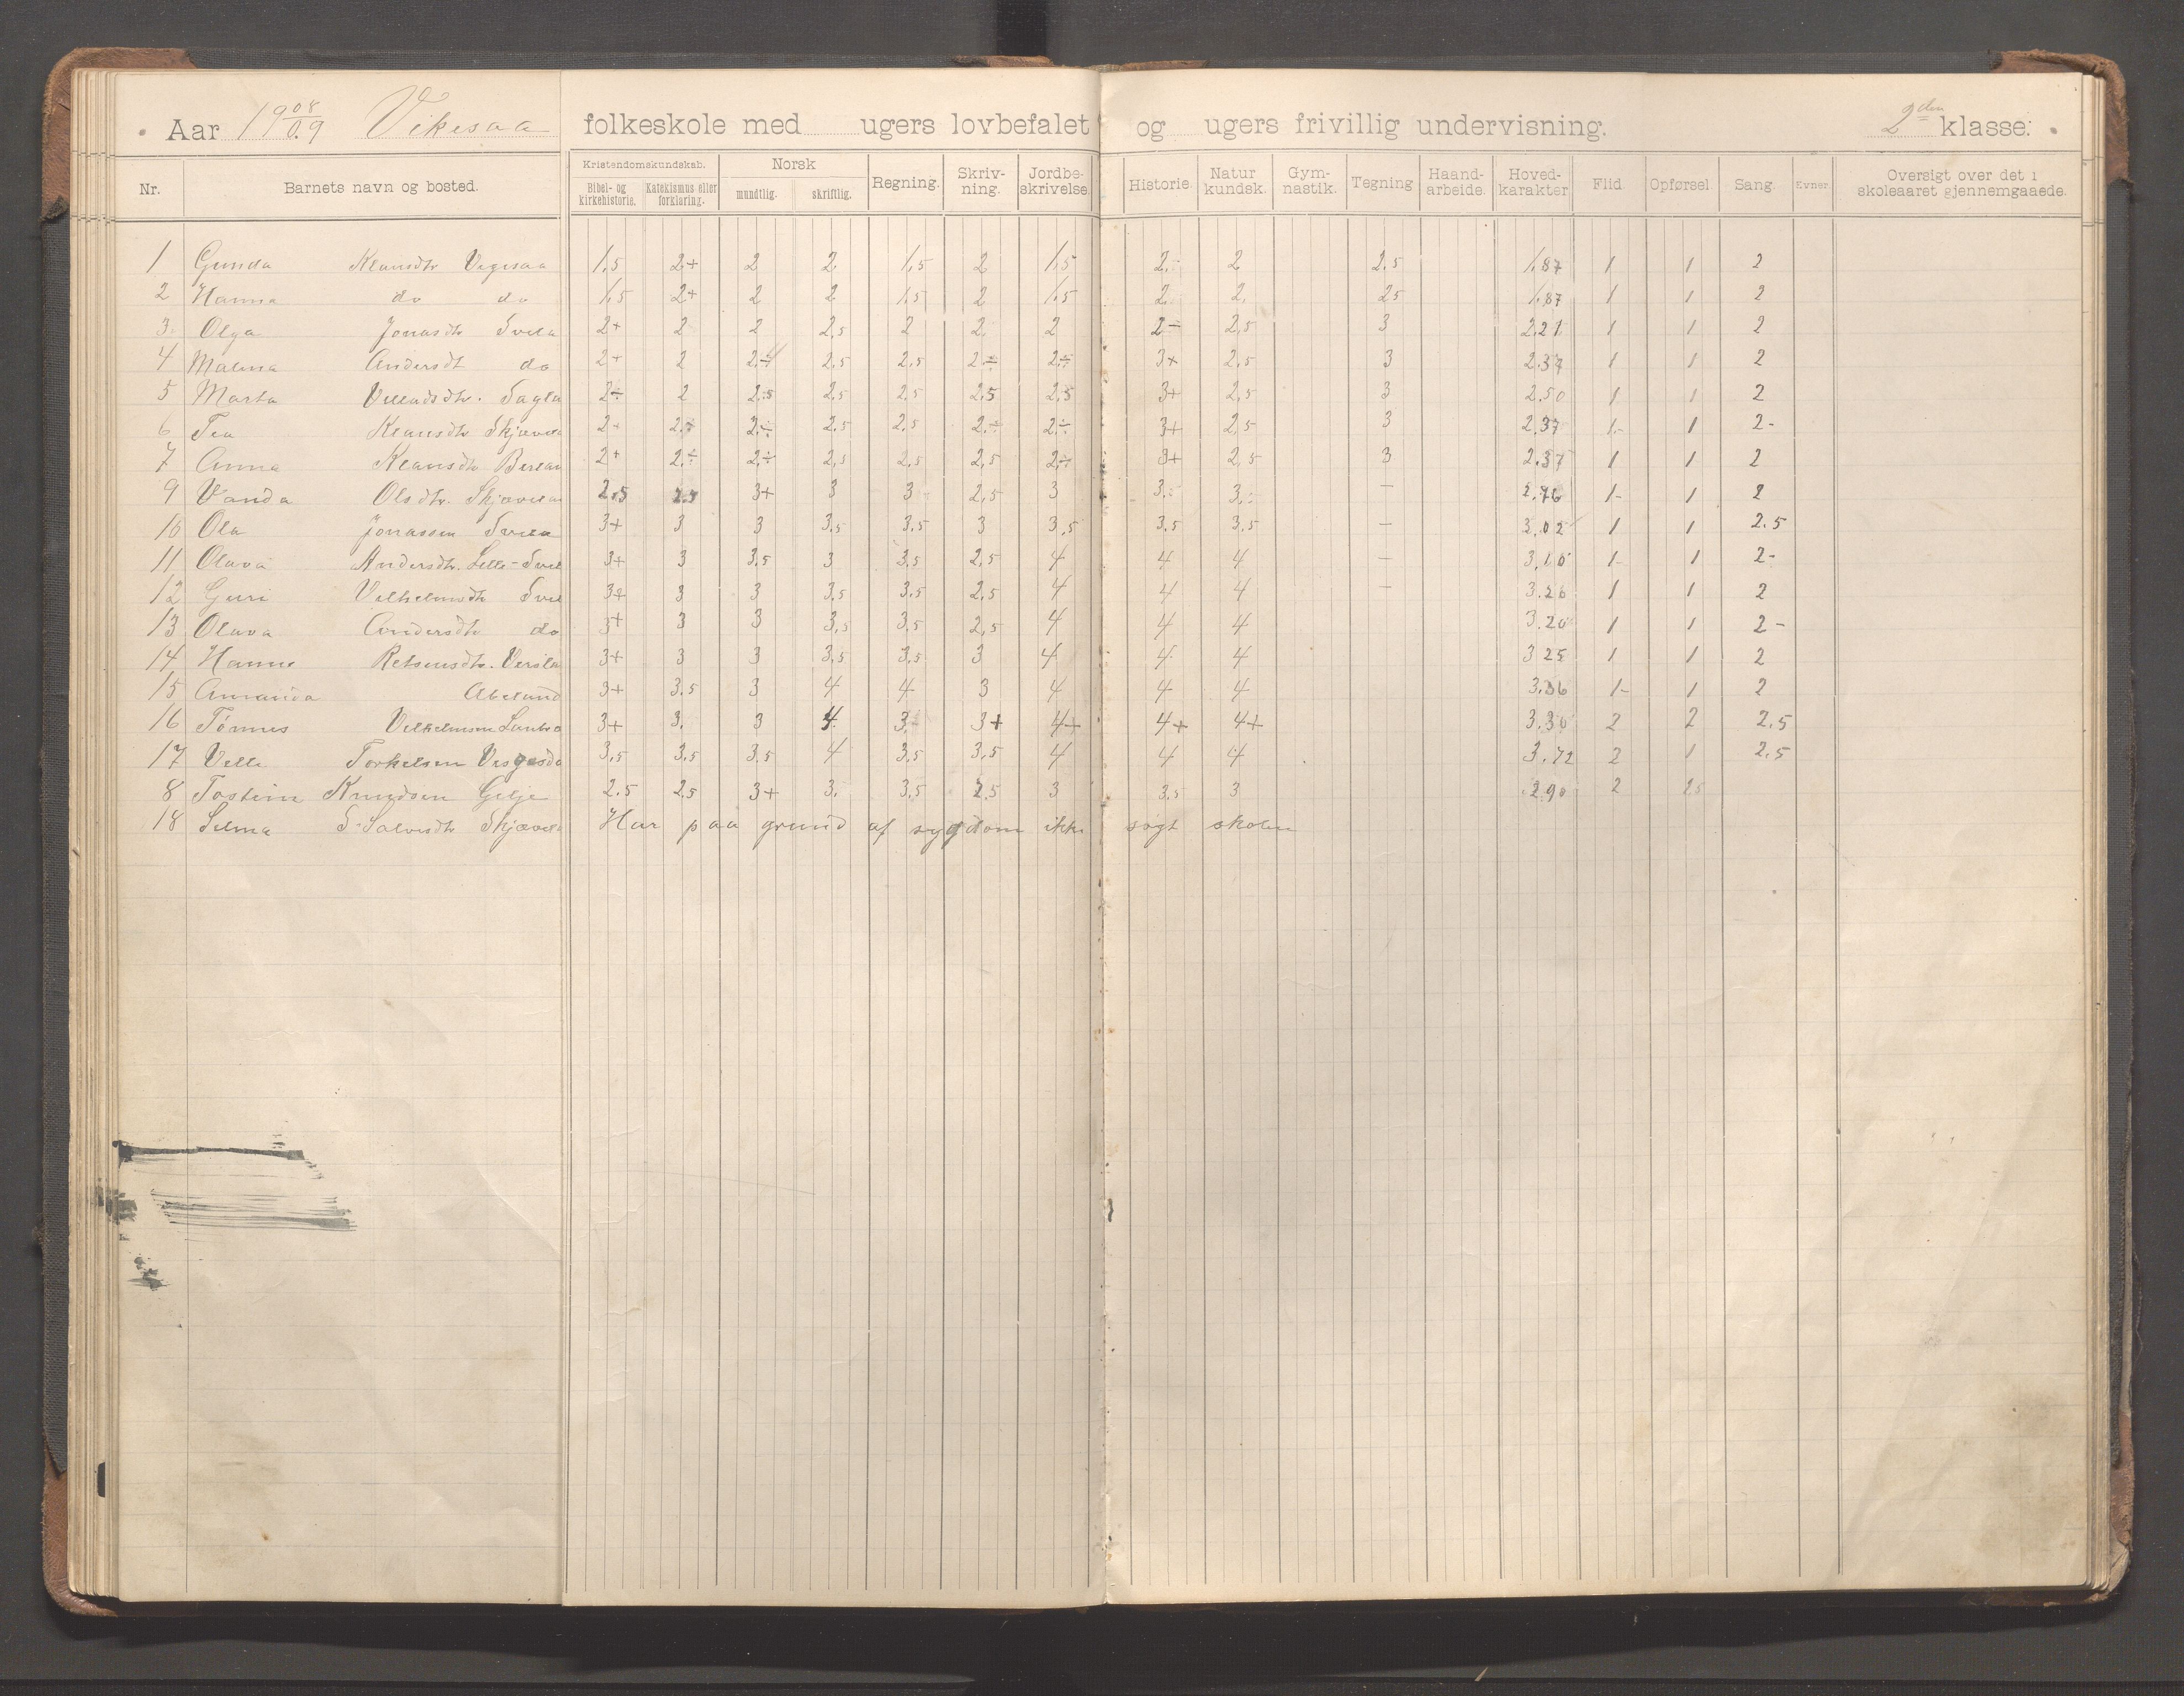 Aar 19 08/09 Vikesaa folkeskole med ugers lovbefalet og ugers frivillig undervisning. 2den klasse.
Nr. Barnets navn og bosted. Kristendomskundskab. Bibel- og kirkehistorie. Katekismus eller forklaring. Norsk mundtlig. skriftlig. Regning. Skriv-ning. Jordbe-skrivelse. Historie. Natur kundsk. Gym-nastik. Tegning Haand-arbeide. Hoved-karakter Flid. Opførsel Sang. Evner. Oversigt over det i skoleaaret gjennemgaaede.
1 Gunda Klausdtr Vegesaa 1,5 2+ 2 2 1,5 2 1,5 2÷ 2 2,5 1,87 1 1 2
2 Hanna do do 1,5 2+ 2 2 1,5 2 1,5 2 2 2,5 1,87 1 1 2
3 Olga Jonasdtr Svela 2+ 2 2 2,5 2 2 2 2- 2,5 3 2,21 1 1 2
4 Malena Andersdt do 2+ 2 2÷ 2,5 2,5 2÷ 2÷ 3+ 2,5 3 2,37 1 1 2
5 Marta 2÷ 2 2,5 2,5 2,5 2,5 2,5 3+ 2,5 3 2,50 1 1 2
6 Tea Klausdtr Skjævela 2+ 2÷ 2÷ 2,5 2,5 2÷ 2÷ 3+ 2,5 3 2,37 1- 1 2-
7 Anna Klausdtr 2+ 2÷ 2÷ 2,5 2,5 2,5 2÷ 3+ 2,5 3 2,37 1 1 2
9 Vanda Olsdtr. Skjævela 2,5 2,5 3+ 3 3 2,5 3 3÷ 3÷ - 2,76 1- 1 2
10 Ola Jonassen Svela 3+ 3 3 3,5 3,5 3 3,5 3,5 3,5 - 3,02 1 1 2,5
11 Olava Andersdtr. Lille-Svel 3+ 3 3,5 3 3,5 2,5 4 4 4 - 3,10 1- 1 2-
12 Guri Vilhelmsdtr Svel 3+ 3 3 3,5 3,5 2,5 4 4 4 - 3,20 1 1 2
13 Olava Andersdtr do 3+ 3 3 3,5 3,5 2,5 4 4 4 3,20 1 1 2-
14 Hanne 3+ 3 3 3,5 3,5 3 4 4 4 3,25 1 1 2
15 Amanda Abeland 3+ 3,5 3 4 4 3 4 4 4 3,36 1- 1 2
16 Tønnes Vilhelmsen 3+ 3. 3 4 3÷ 3+ 4+ 4+ 4+ 3,30 2 2 2,5
17 Velle Torkelsen 3,5 3,5 3,5 4 3,5 3,5 4 4 4 3,72 2 1 2,5
8 Tostein Knudsen Gelje 2,5 2,5 3+ 3. 3,5 2,5 3 3,5 3 2,90 2 1,5
18 Selma S. Salvesdtr Skjævela Har paa grund af sygdom ikke søgt skolen